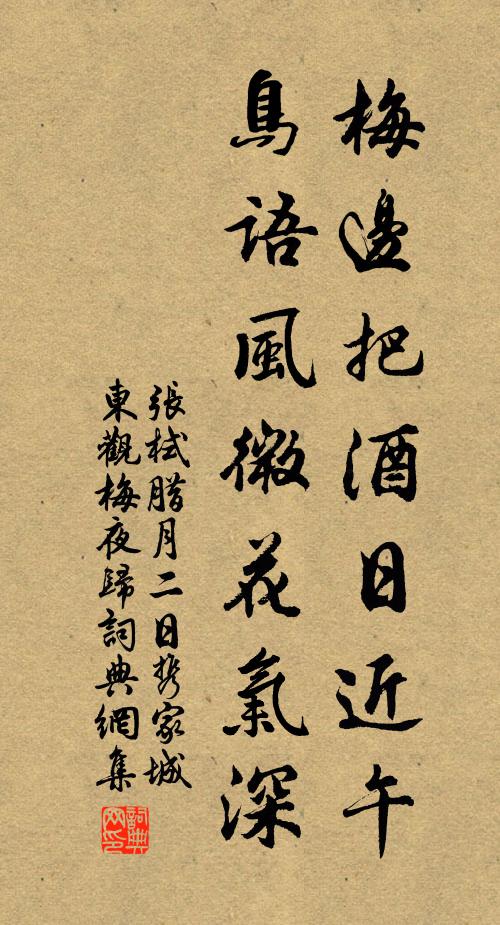 梅邊把酒日近午
鳥語風微花氣深
張栻腊月二日携家城
東觀梅夜歸詞典網集
詞典网印